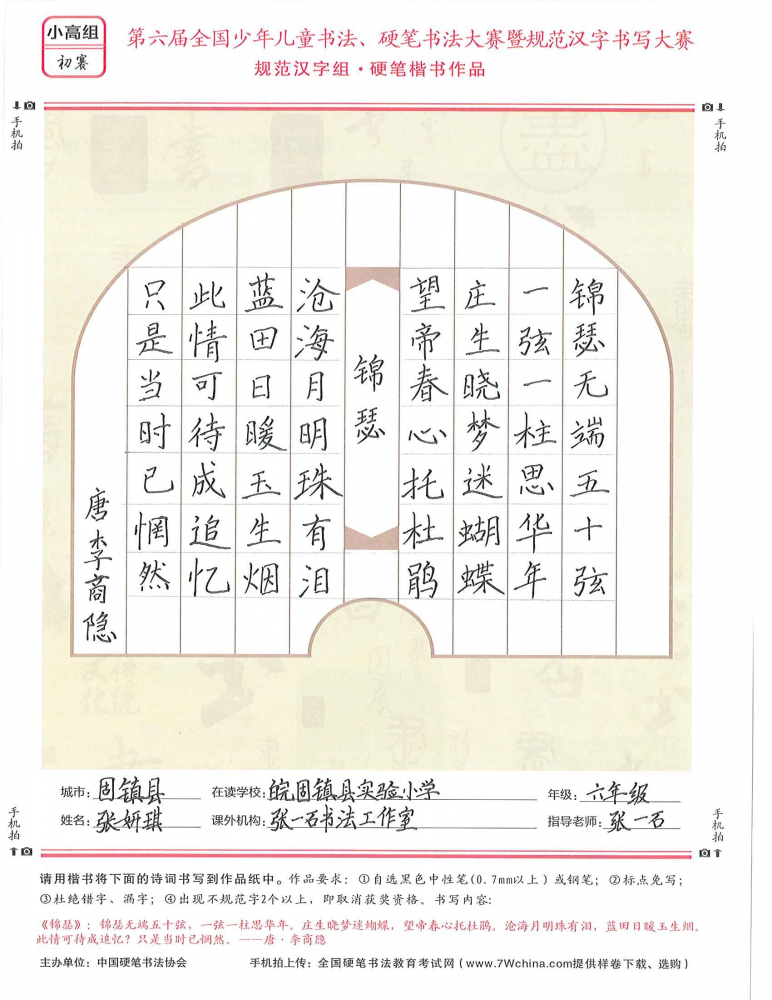 小高组
初赛
第六届全国少年儿童书法、硬笔书法大赛暨规范汉字书写大赛
规范汉字组·硬笔楷书作品
手机拍
手机拍
锦瑟无端五十弦
一弦一柱思华年
庄生晓梦迷蝴蝶
望帝春心托杜鹃
锦瑟
沧海月明珠有泪
蓝田日暖玉生烟
此情可待成追忆
只是当时已惘然
唐李商隐
城市:固镇县 在读学校:皖固镇县实验小学 年级:六年级
姓名:张妍琪 课外机构:张一石书法工作室 指导老师:张一石
手机拍
手机拍
请用楷书将下面的诗词书写到作品纸中。作品要求:①自选黑色中性笔(0.7mm以上)或钢笔;②标点免写;
③杜绝错字、漏字;④出现不规范字2个以上,即取消获奖资格。书写内容:
《锦瑟》:锦瑟无端五十弦,一弦一柱思华年。庄生晓梦迷蝴蝶,望帝春心托杜鹃。沧海月明珠有泪,蓝田日暖玉生烟。
此情可待成追忆?只是当时已惘然。——唐·李商隐
主办单位:中国硬笔书法协会 手机拍上传:全国硬笔书法教育考试网(www.7Wchina.com提供样卷下载、选购)